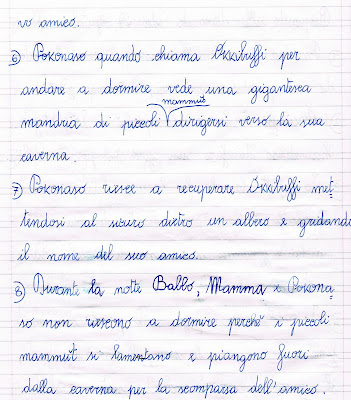 vo amico.
6) Poronaso quando chiama Occhibuffi per
andare a dormire vede una gigantesca
mammut
mandria di piccoli dirigersi verso la sua
caverna.
7) Poronaso riesce a recuperare Occhibuffi met-
tendosi al sicuro dietro un albero e gridando
il nome del suo amico.
8) Durante la notte Babbo, Mamma e Porona-
so non riescono a dormire perché i piccoli
mammut si lamentano e piangono fuori
dalla caverna per la scomparsa dell'amico.